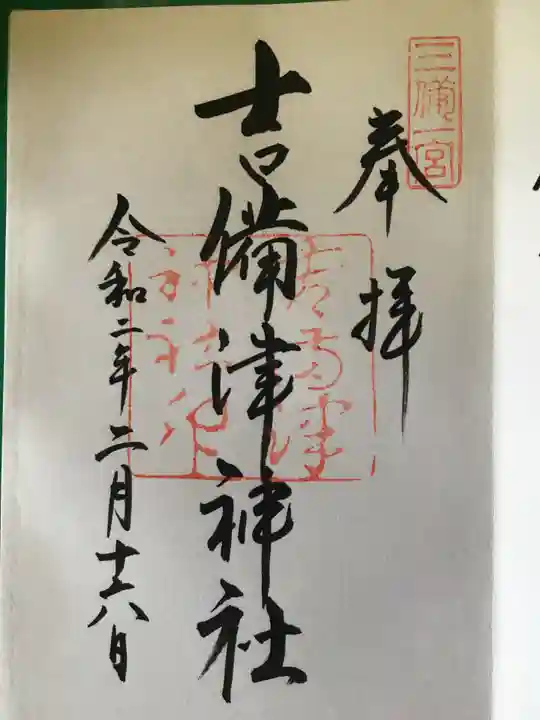 三備一宮
奉拝
吉備津神社
令和二年二月十六日